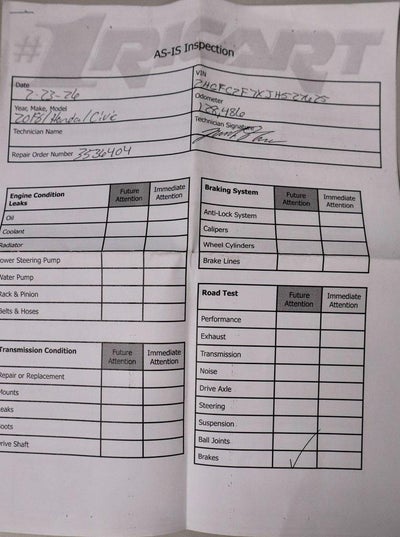 #1 RICART
AS-IS Inspection
Date 2-23-26
VIN
Year, Make, Model
2018/Honda/Civic
Odometer 128,486
Technician Name
Technician Signature
Repair Order Number 3536404
Engine Condition Future Attention Immediate Attention
Leaks
Oil
Coolant
Radiator
ower Steering Pump
Water Pump
Rack & Pinion
Belts & Hoses
Transmission Condition Future Attention Immediate Attention
Repair or Replacement
Mounts
Leaks
Boots
Drive Shaft
Braking System Future Attention Immediate Attention
Anti-Lock System
Calipers
Wheel Cylinders
Brake Lines
Road Test Future Attention Immediate Attention
Performance
Exhaust
Transmission
Noise
Drive Axle
Steering
Suspension
Ball Joints
Brakes